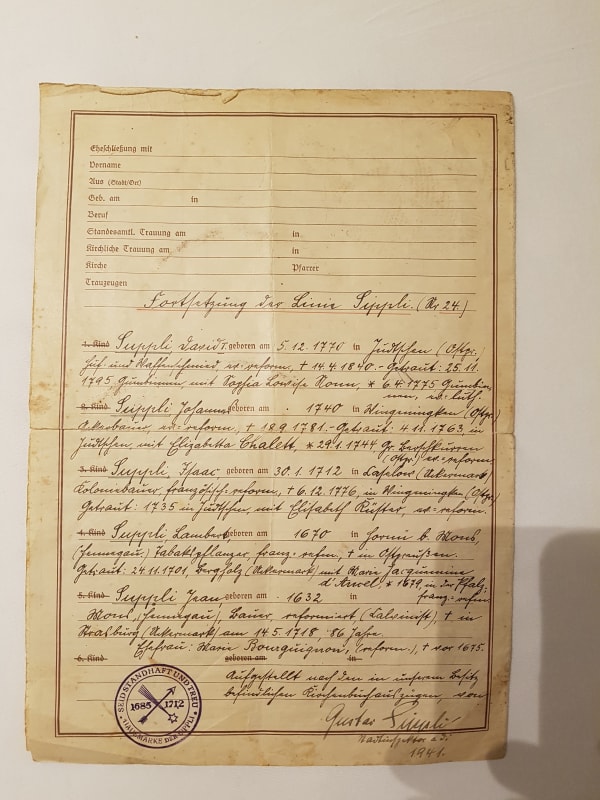 Eheschließung mit
Vorname
Aus (Stadt/Ort)
Geb. am in
Beruf
Standesamtl. Trauung am in
Kirchliche Trauung am in
Kirche Pfarrer
Trauzeugen
Fortsetzung der Linie Sippli. (Nr 24.)
1. Kind Suppli David geboren am 5.12.1770 in Judtschen (Ostpr.)
Huf und Waffenschmied ev: reform. + 14.4.1840. - Getraut: 25.11.
1795 Gumbinnen, mit Sophia Lowise Ronn, * 6.4.1775 Gumbin-
nen, ev: luth.
2. Kind Suppli Johann geboren am . 1740 in Wingeningken (Ostpr.)
Ackerbauer, ev: reform, + 18.9.1781. - Getraut 4.11.1763, in
Judtschen, mit Elizabetta Chalett, * 29.1.1744 Gr. Berschkurren
(Ostpr.) ev: reform.
3. Kind Suppli, Isaac geboren am 30.1.1712 in Laselow (Uckermark)
Koloniebauer, französisch-reform, + 6.12.1776, in Wingeningken (Ostpr.)
Getraut: 1735 in Judtschen, mit Elisabeth Küster, ev: reform.
4. Kind Suppli, Lambert geboren am . 1670 in b. Mons,
(Hennegau,) Tabakpflanzer, franz: refor, + in Ostpreußen.
Getraut: 24.11.1701, Bergholz (Uckermark) mit Marie Jacquemine
d'Ancel * 1679, in der Pfalz,
franz: refor
5. Kind Suppli Jean, geboren am . 1632 in
Mons, (Hennegau), Bauer, reformiert (Calvinist), + in
Strasburg (Uckermark) am 14.5.1718, 86 Jahre.
Ehefrau: Marie Bourguignon, (reform.), + vor 1675.
6. Kind geboren am in
Aufgestellt nach den in unserem Besitz
befindlichen Kirchenbuchauszügen, von
Gustav Sippli
a. D.
1941.
SEID STANDHAFT UND TREU
1685 1712
HAUSMARKE DER SIPPLI